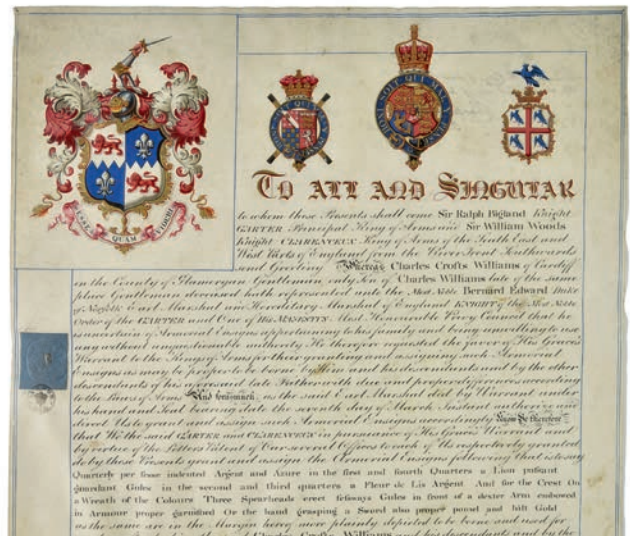 ESSE QUAM VIDERI
HONI SOIT QUI MAL Y PENSE
TO ALL AND SINGULAR
to whom these Presents shall come Sir Ralph Bigland Knight
GARTER Principal King of Arms and Sir William Woods
Knight CLARENCEUX King of Arms of the South East and
West Parts of England from the River Trent Southwards
Send Greeting Whereas Charles Crofts Williams of Cardiff
in the County of Glamorgan Gentleman, only Son of Charles Williams late of the same
place Gentleman deceased hath represented unto the Most Noble Bernard Edward Duke
of Norfolk Earl Marshal and Hereditary Marshal of England KNIGHT of the Most Noble
Order of the GARTER and One of His MAJESTYS Most Honourable Privy Council that he
is uncertain of Armorial Ensigns appertaining to his family and being unwilling to use
any without unquestionable authority He therefore requested the favor of His Grace's
Warrant to the Kings of Arms for their granting and assigning such Armorial
Ensigns as may be proper to be borne by Him and his descendants and by the other
descendants of his aforesaid late Father with due and proper differences according
to the Laws of Arms And forasmuch as the said Earl Marshal did by Warrant under
his hand and Seal bearing date the seventh day of March Instant authorize and
direct Us to grant and assign such Armorial Ensigns accordingly Know Ye therefore
that We the said GARTER and CLARENCEUX in pursuance of His Grace's Warrant and
by virtue of the Letters Patent of Our several Offices to each of Us respectively granted
do by these Presents grant and assign the Armorial Ensigns following that is to say
Quarterly per fesse indented Argent and Azure in the first and fourth Quarters a Lion passant
guardant Gules in the second and third quarters a Fleur de Lis Argent And for the Crest On
a Wreath of the Colours Three Spearheads erect fessways Gules in front of a dexter Arm embowed
in Armour proper garnished Or the hand grasping a Sword also proper pomel and hilt Gold
as the same are in the Margin hereof more plainly depicted to be borne and used for
Charles Crofts Williams and his descendants and by the